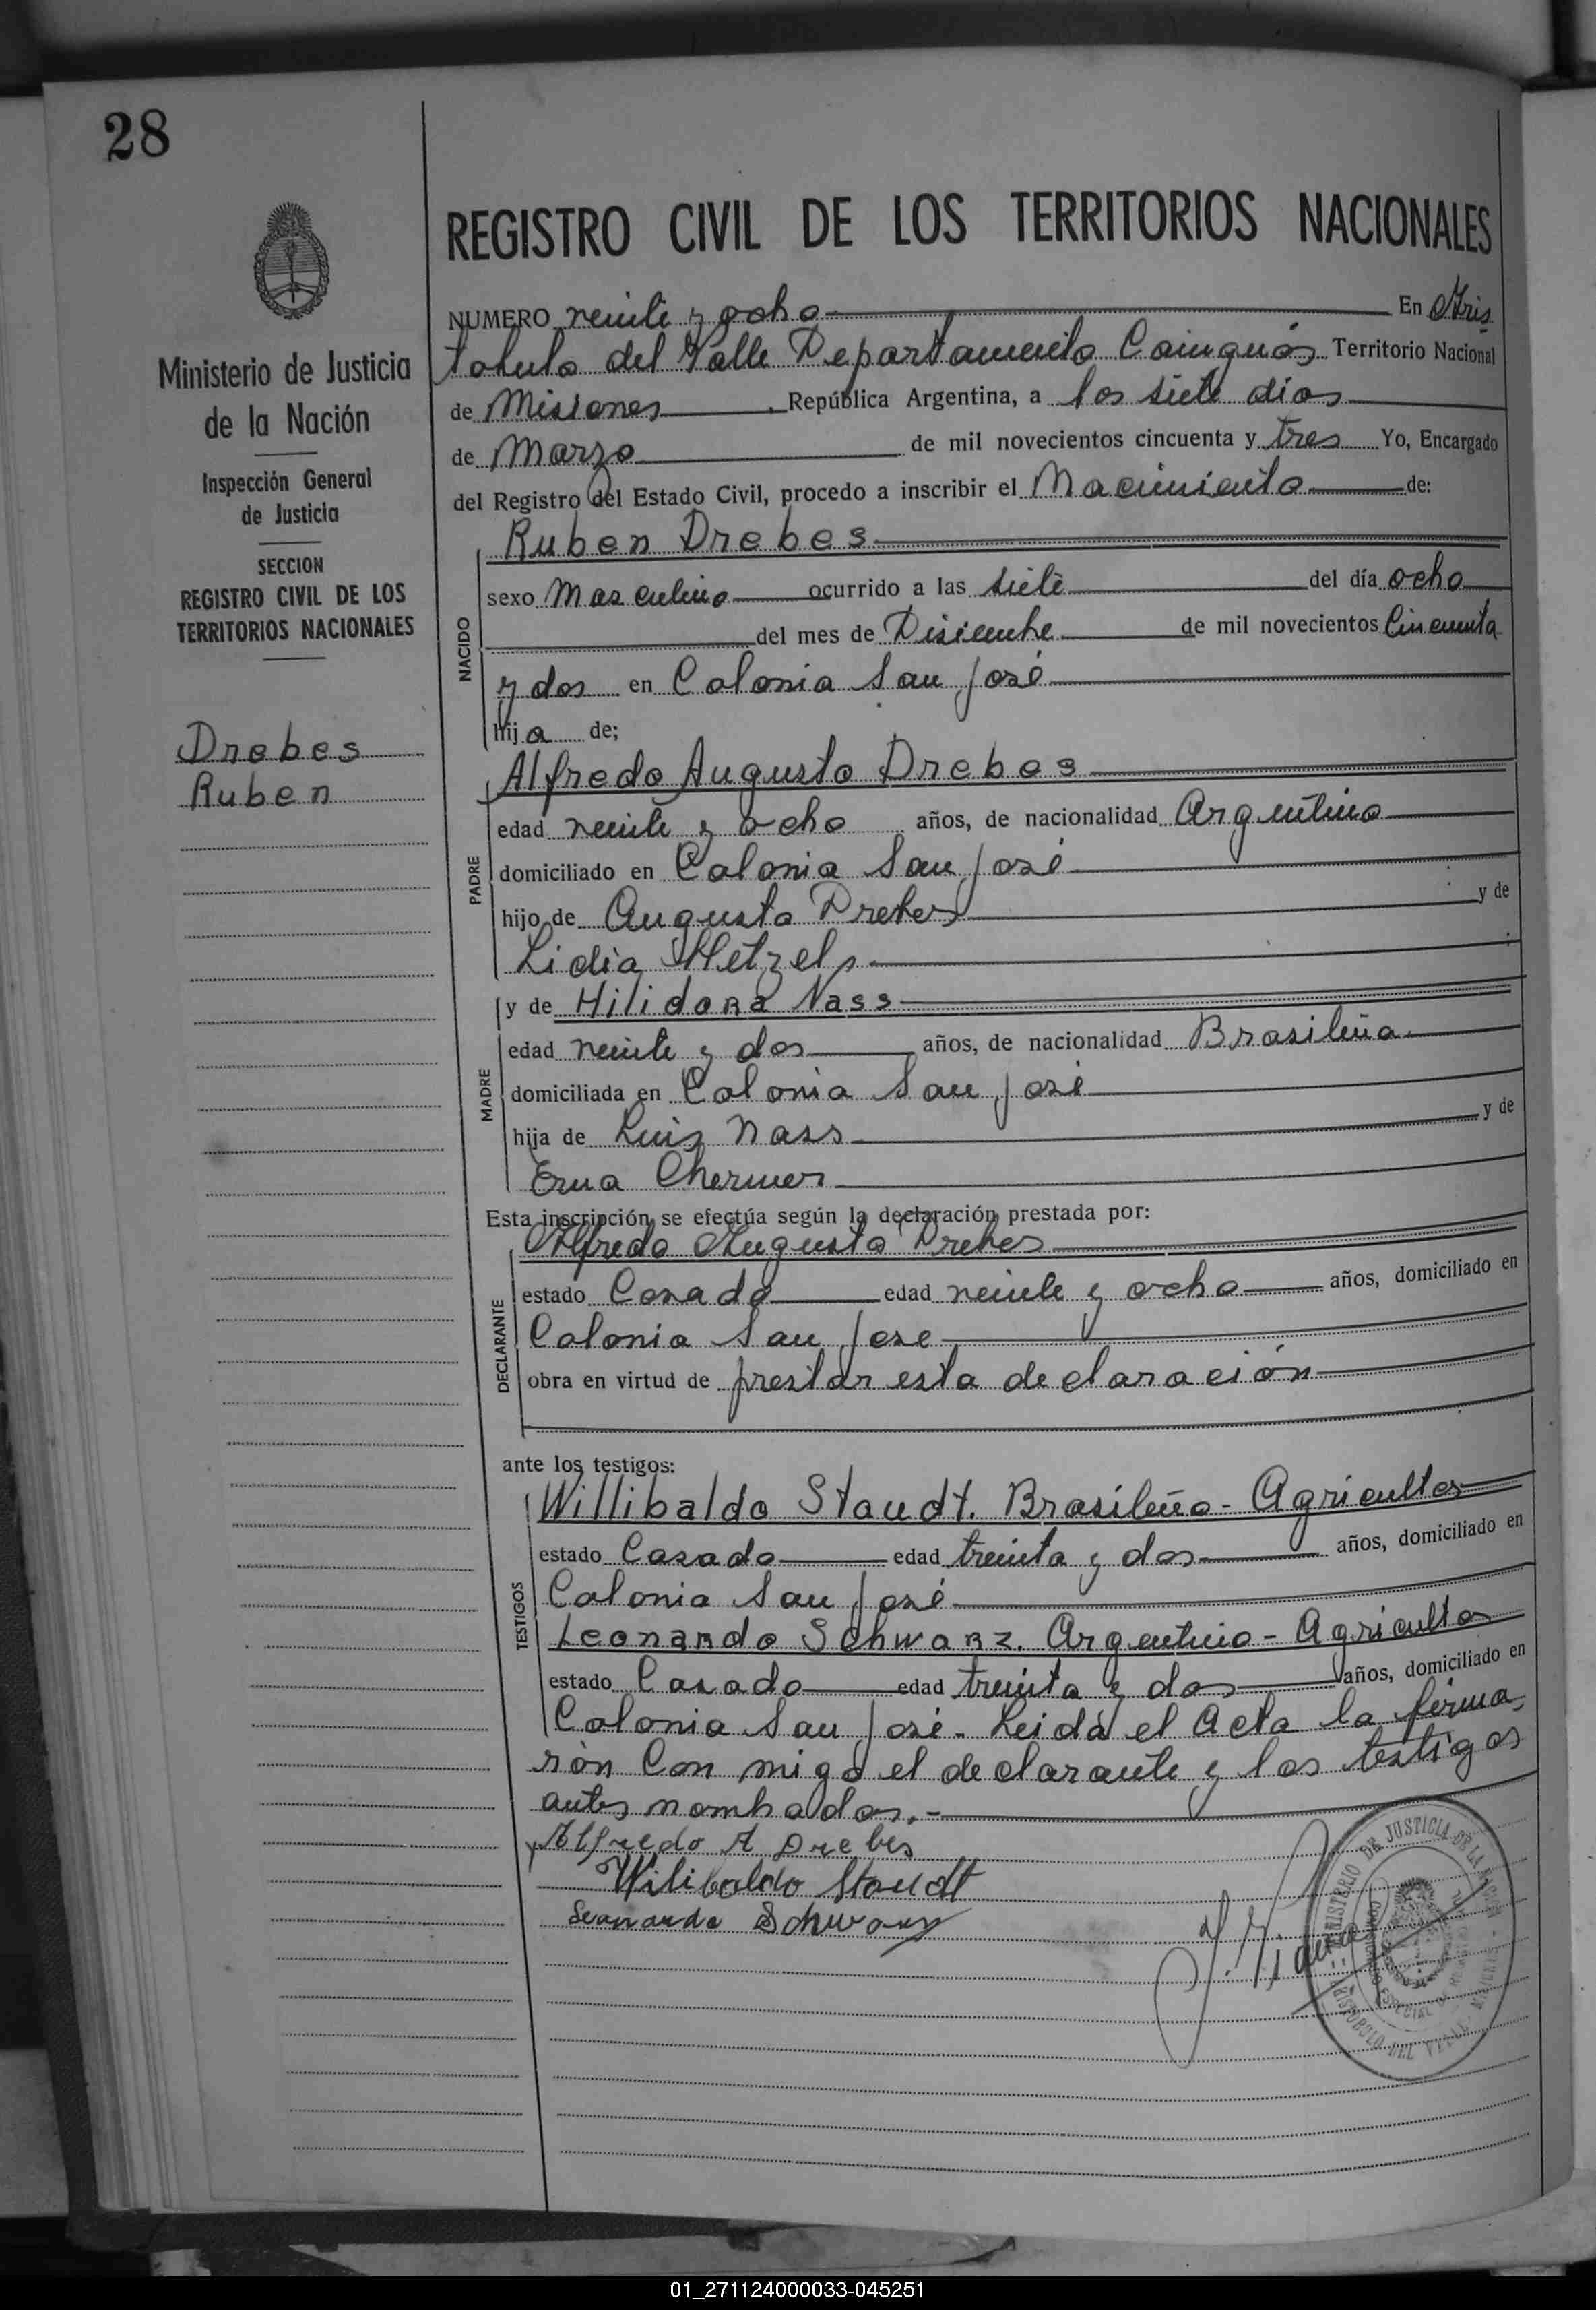 28
REGISTRO CIVIL DE LOS TERRITORIOS NACIONALES
Ministerio de Justicia
de la Nación
Inspección General
de Justicia
SECCION
REGISTRO CIVIL DE LOS
TERRITORIOS NACIONALES
Drebes
Ruben
NUMERO veinte y ocho En Aris
tobulo del Valle Departamento Cainguás Territorio Nacional
de Misiones, República Argentina, a los siete dias
de Marzo de mil novecientos cincuenta y tres Yo, Encargado
del Registro del Estado Civil, procedo a inscribir el Nacimiento de:
NACIDO
Ruben Drebes
sexo Masculino ocurrido a las siete del día ocho
del mes de Disiembe de mil novecientos Cincuenta
y dos en Colonia San José
hijo de;
PADRE
Alfredo Augusto Drebes
edad veinte y ocho años, de nacionalidad Argentino
domiciliado en Colonia San José
hijo de Augusto Drebes y de
Lidia
MADRE
y de Hilidora Nass
edad veinte y dos años, de nacionalidad Brasileña
domiciliada en Colonia San José
hija de Luis Nass y de
Erna Chermer
Esta inscripción se efectúa según la declaración prestada por:
DECLARANTE
Alfredo Augusto Drebes
estado Casado edad veinte y ocho años, domiciliado en
Colonia San Jose
obra en virtud de prestar esta declaración
ante los testigos:
TESTIGOS
Willibaldo Staudt. Brasileño - Agricultor
estado Casado edad treinta y dos años, domiciliado en
Colonia San José
Leonardo Schwarz. Argentino - Agricultor
estado Casado edad treinta y dos años, domiciliado en
Colonia San José - Leida el Acta la firma
ron Con migo el declarante y los testigos
antes nombados.-
Alfredo A Drebes
Wilibaldo Staudt
Leonardo Schwarz
MINISTERIO DE JUSTICIA DE LA NACION
ARISTOBULO DEL VALLE
01_271124000033-045251